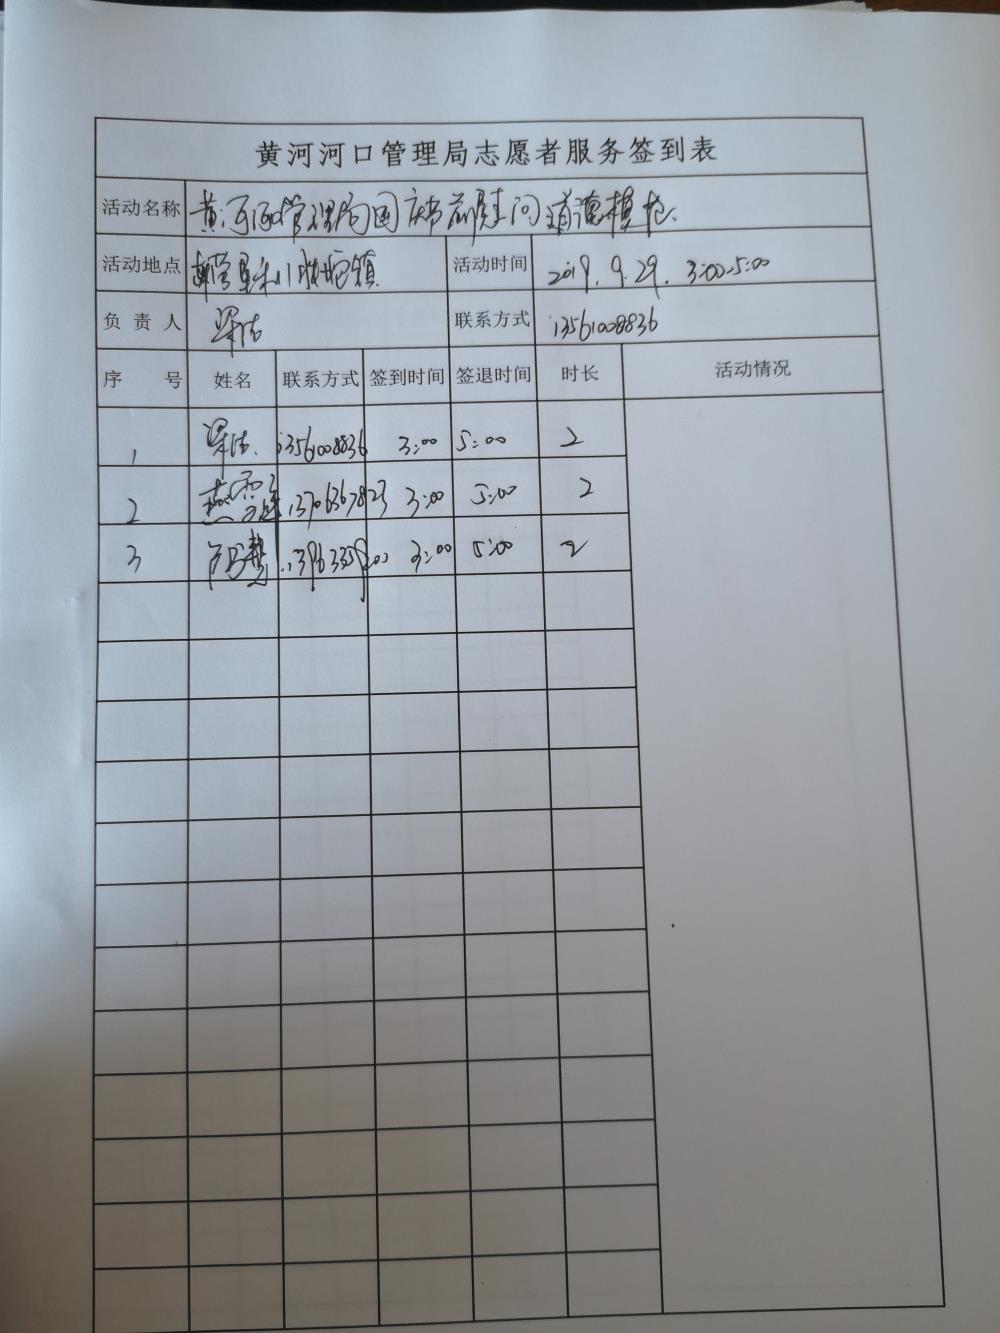 黄河河口管理局志愿者服务签到表
活动名称 黄河河口管理局国庆节前慰问道德模范.
活动地点 活动时间 2019.9.29. 3:00-5:00
负责人 梁洁 联系方式 13561008836
序号 姓名 联系方式 签到时间 签退时间 时长 活动情况
1 梁洁. 13561008836 3:00 5:00 2
2 燕雪 13706367823 3:00 5:00 2
3 3:00 5:00 2